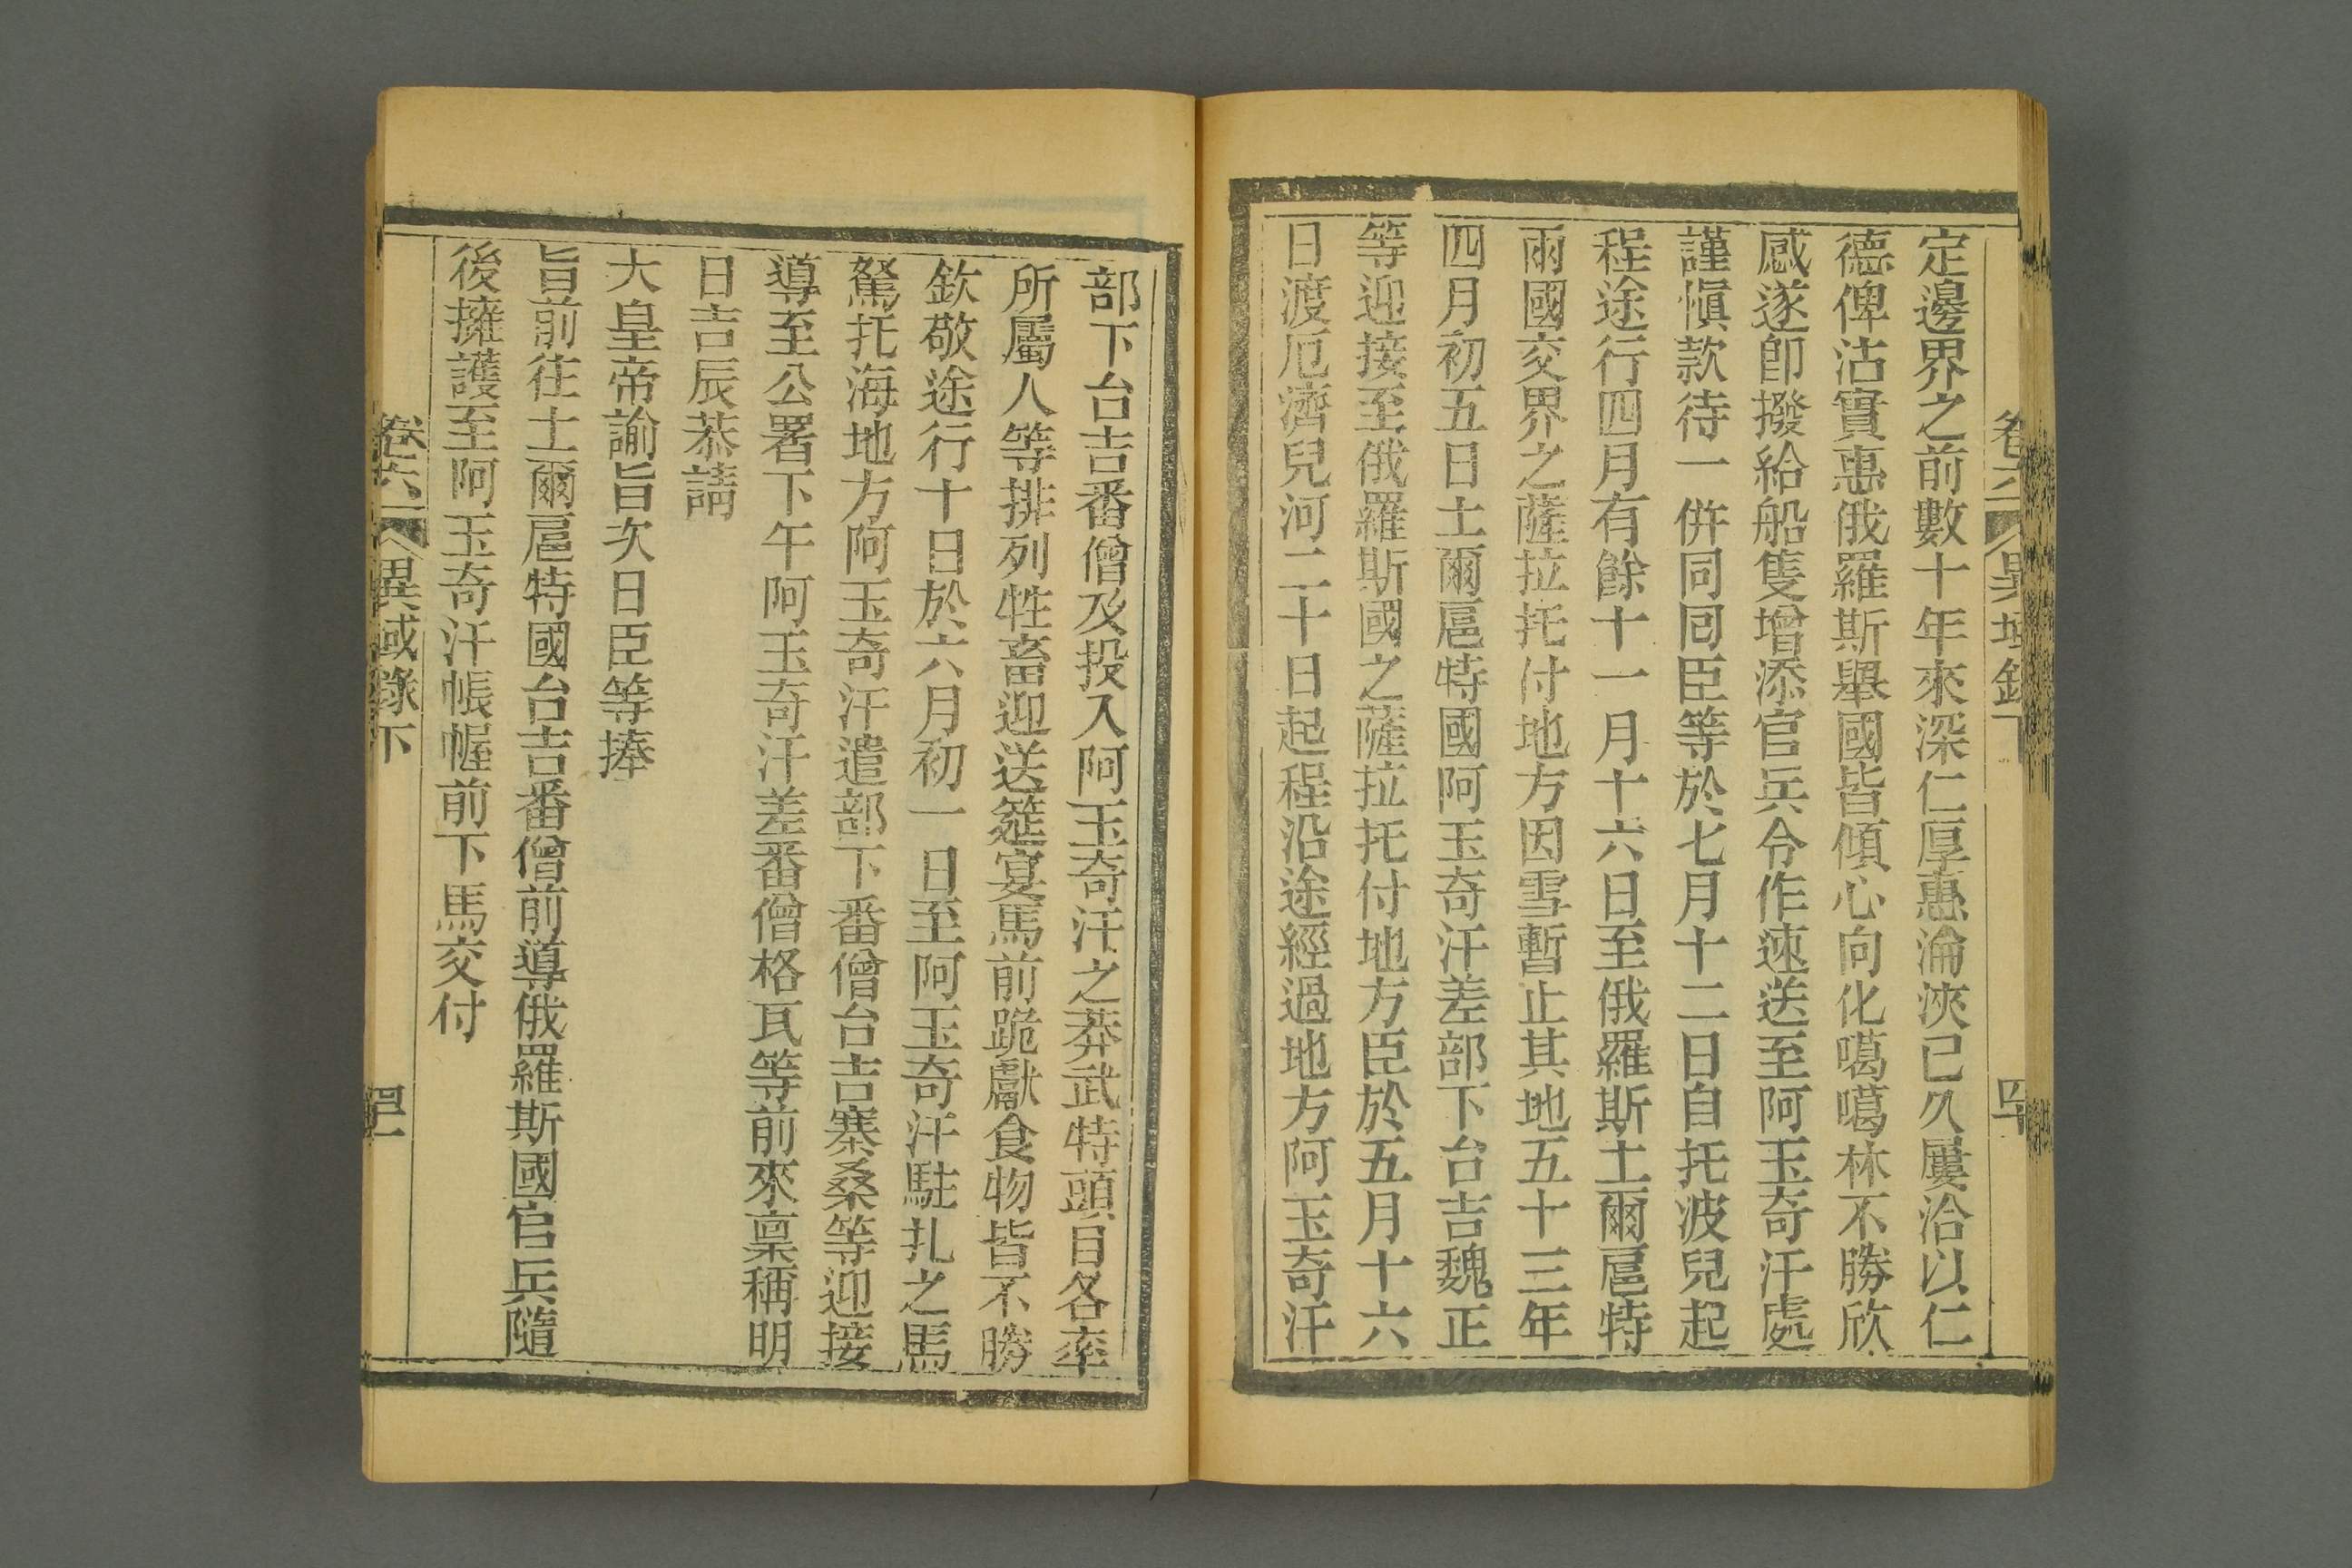 定邊界之前數十年來深仁厚惠淪浹已久屢洽以仁
德俾沾實惠俄羅斯舉國皆傾心向化噶噶林不勝欣
感遂卽撥給船隻增添官兵令作速送至阿玉奇汗處
謹愼款待一倂同囘臣等於七月十二日自托波兒起
程途行四月有餘十一月十六日至俄羅斯土爾扈特
兩國交界之薩拉托付地方因雪暫止其地五十三年
四月初五日土爾扈特國阿玉奇汗差部下台吉魏正
等迎接至俄羅斯國之薩拉托付地方臣於五月十六
日渡厄濟兒河二十日起程沿途經過地方阿玉奇汗
部下台吉番僧及投入阿玉奇汗之莽武特頭目各率
所屬人等排列牲畜迎送筵宴馬前跪獻食物皆不勝
欽敬途行十日於六月初一日至阿玉奇汗駐扎之馬
駑托海地方阿玉奇汗遣部下番僧台吉寨桑等迎接
導至公署下午阿玉奇汗差番僧格瓦等前來稟稱明
日吉辰恭請
大皇帝諭旨次日臣等捧
旨前往土爾扈特國台吉番僧前導俄羅斯國官兵隨
後擁護至阿玉奇汗帳幄前下馬交付
卷六 異域錄下 四十一